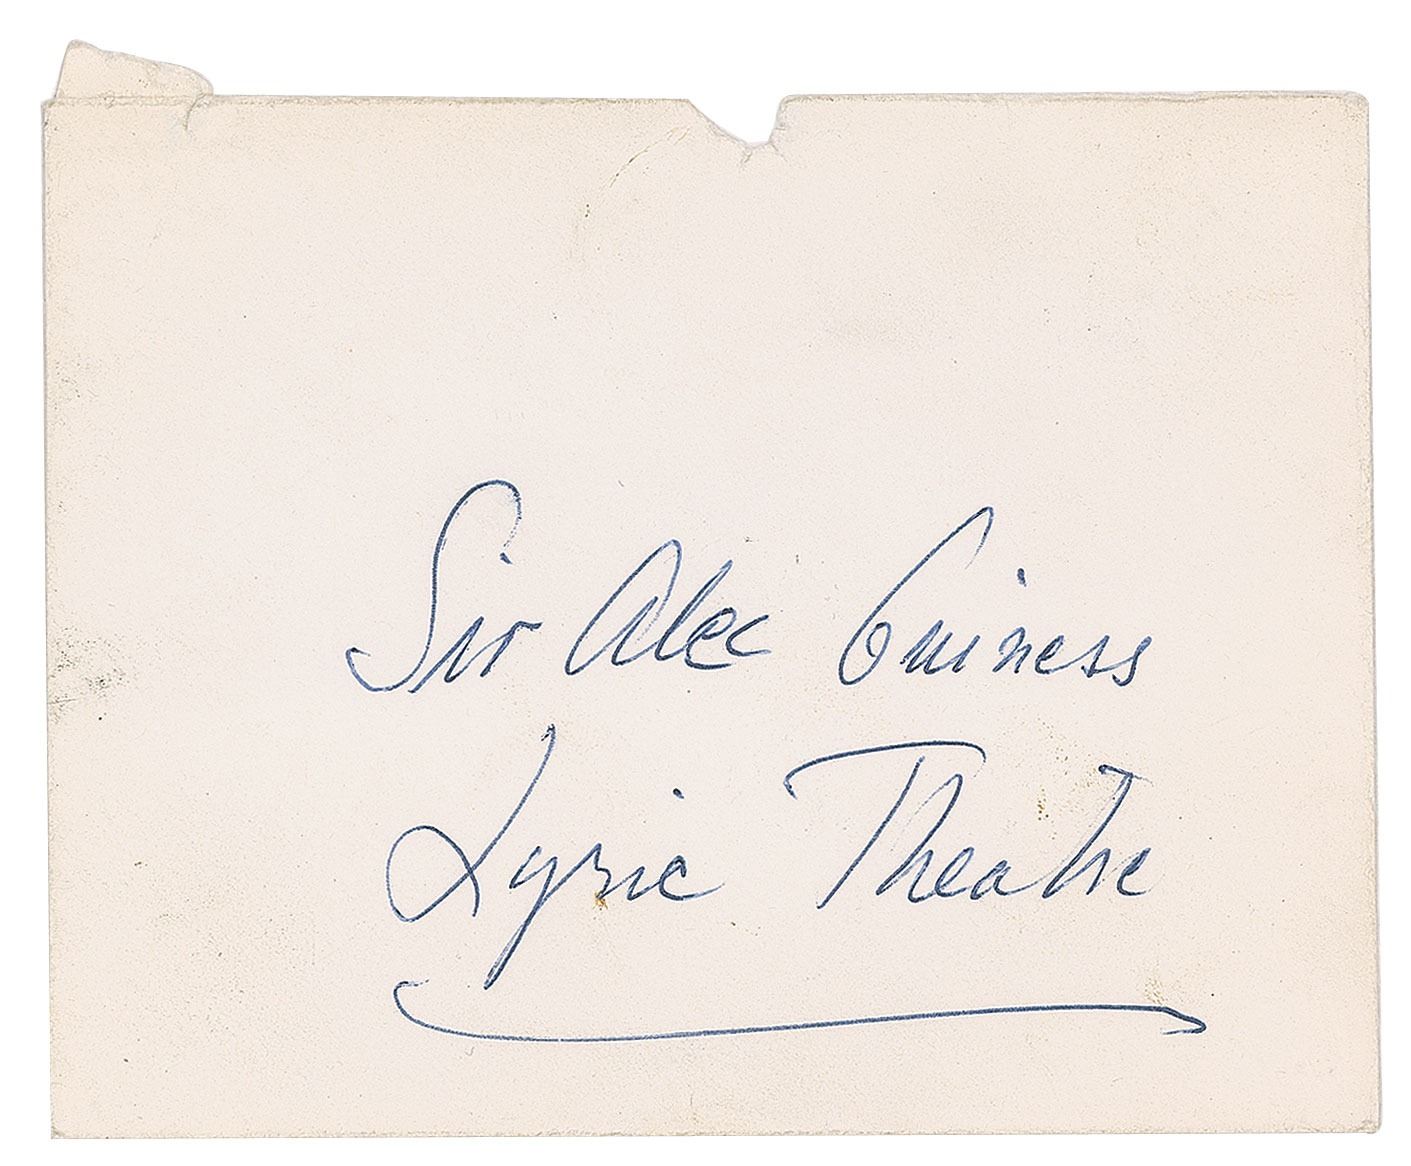 Sir Alec Guiness
Lyric Theatre